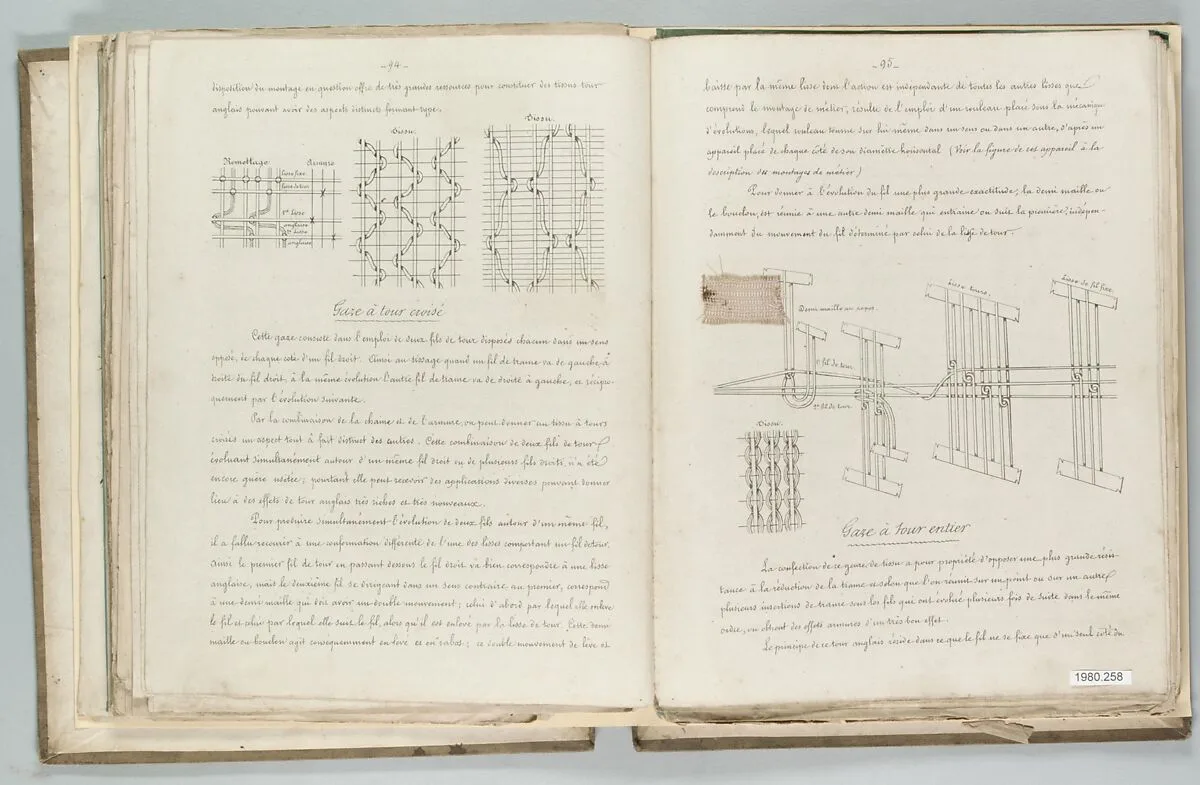 _94_
disposition du montage en question offre de très grandes ressources pour constituer des tissus tour
anglais pouvant avoir des aspects distincts formant type.
Tissu.
Tissu.
Remettage
Armure
lisse fixe
lisse de tour
1re lisse
anglaise
2e lisse
anglaise
Gaze à tour croisé
Cette gaze consiste dans l'emploi de deux fils de tour disposés chacun dans un sens
opposé, de chaque coté d'un fil droit. Ainsi au tissage quand un fil de trame va de gauche à
droite du fil droit, à la même évolution l'autre fil de trame va de droite à gauche, et récipro-
quement par l'évolution suivante.
Par la combinaison de la chaine et de l'armure, on peut donner au tissu à tours
croisés un aspect tout à fait distinct des autres. Cette combinaison de deux fils de tour
évoluant simultanément autour d'un même fil droit ou de plusieurs fils droits, n'a été
encore guère usitée; pourtant elle peut recevoir des applications diverses pouvant donner
lieu à des effets de tour anglais très riches et très nouveaux.
Pour produire simultanément l'évolution de deux fils autour d'un même fil,
il a fallu recourir à une conformation différente de l'une des lisses comportant un fil de tour.
Ainsi le premier fil de tour en passant dessous le fil droit va bien correspondre à une lisse
anglaise, mais le deuxième fil se dirigeant dans un sens contraire au premier, correspond
à une demi maille qui doit avoir un double mouvement; celui d'abord par lequel elle enlève
le fil et celui par lequel elle suit le fil, alors qu'il est enlevé par la lisse de tour. Cette demi
maille ou boucle agit conséquemment en levé et en rabat; ce double mouvement de lève et
_95_
baisse par la même lisse dont l'action est indépendante de toutes les autres lisses que
comprend le montage de métier, résulte de l'emploi d'un rouleau placé sous la mécanique
d'évolutions, lequel rouleau tourne sur lui même dans un sens ou dans un autre, d'après un
appareil placé de chaque côté de son diamètre horizontal (Voir la figure de cet appareil à la
description des montages de métier)
Pour donner à l'évolution du fil une plus grande exactitude, la demi maille ou
le boucle, est réunie à une autre demi maille qui entraine ou suit la première, indépen-
damment du mouvement du fil déterminé par celui de la lisse de tour.
Demi maille au repos.
Lisse tours.
Lisse de fil fixe.
1er fil de tour
2e fil de tour
Tissu.
Gaze à tour entier
La confection de ce genre de tissu a pour propriété d'opposer une plus grande résis-
tance à la réduction de la trame et selon que l'on réunit sur un point ou sur un autre
plusieurs insertions de trame sous les fils qui ont évolué plusieurs fois de suite dans le même
ordre, on obtient des effets armures d'un très bon effet.
Le principe de ce tour anglais réside dans ce que le fil ne se fixe que d'un seul côté du
1980.258